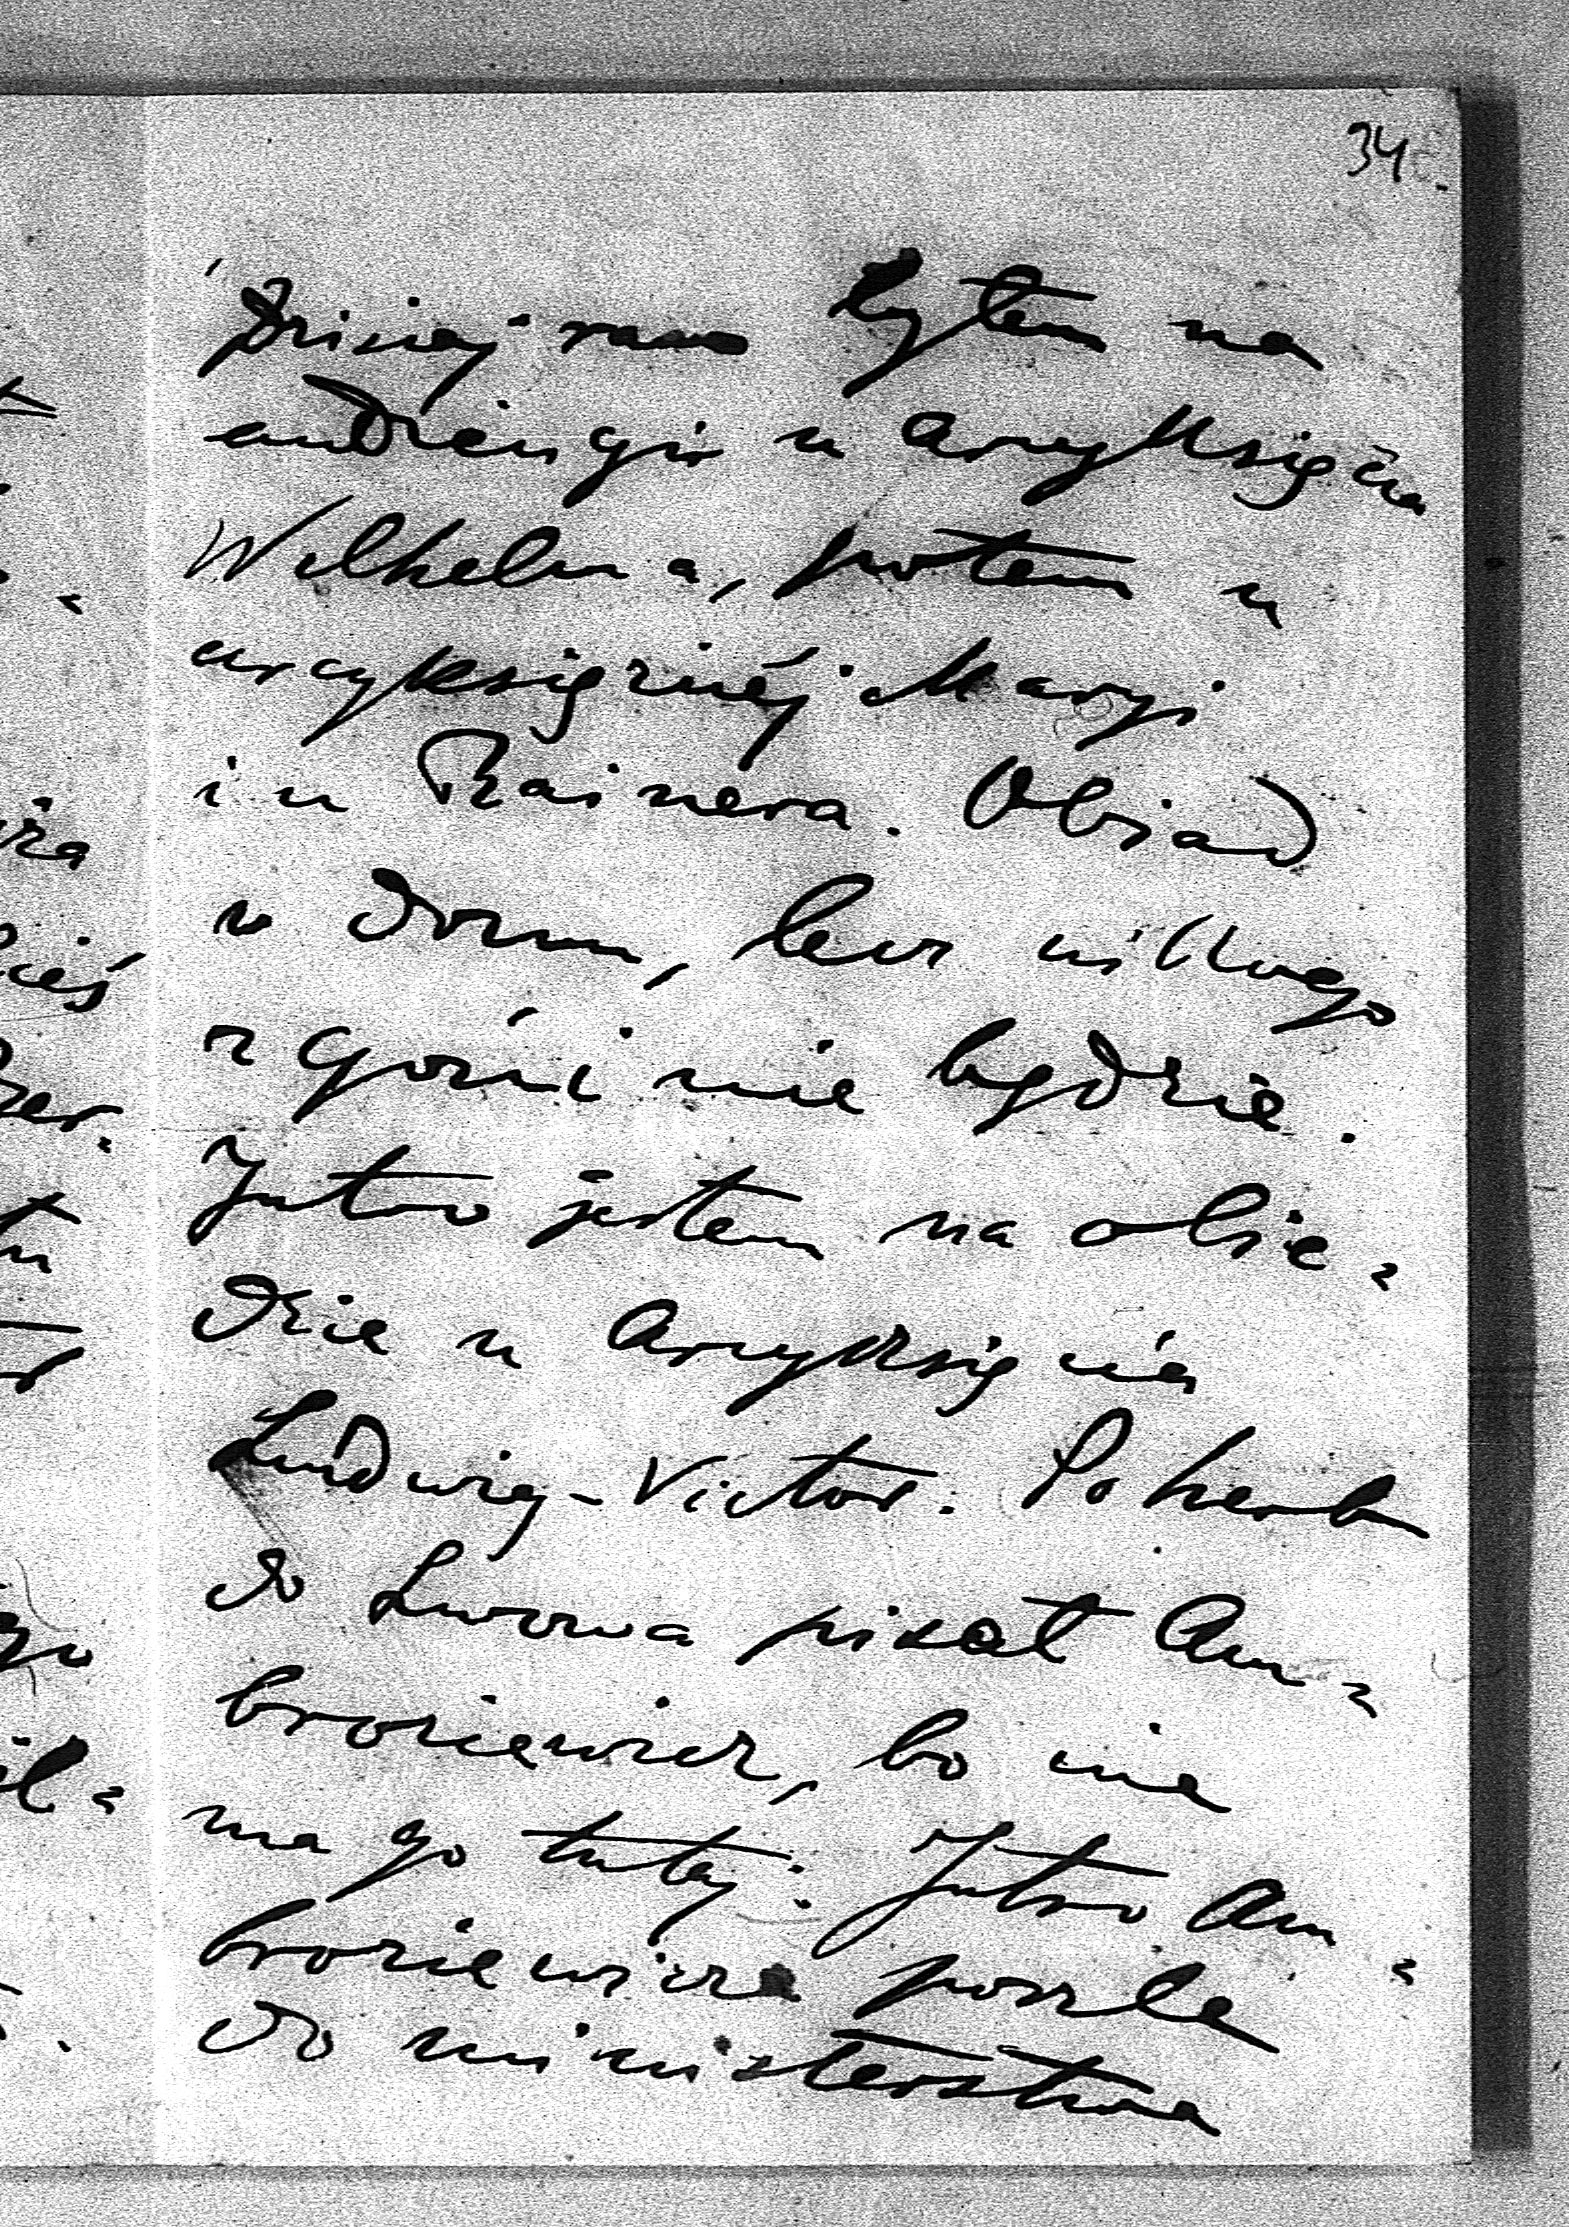 34
Dzisiaj rano byłem na
audiencyi u Arcyksięcia
Wilhelma, potem u
arcyksiężnéj Maryi
i u Rainera. Obiad
w domu, lecz nikogo
z gości nie będzie.
Jutro jestem na obie-
dzie u Arcyksięcia
Ludwig-Victor. Po herb
do Lwowa pisał Am-
broziewicz, bo nie
ma go tutaj. Jutro Am-
broziewicza poszlę
do ministerstwa